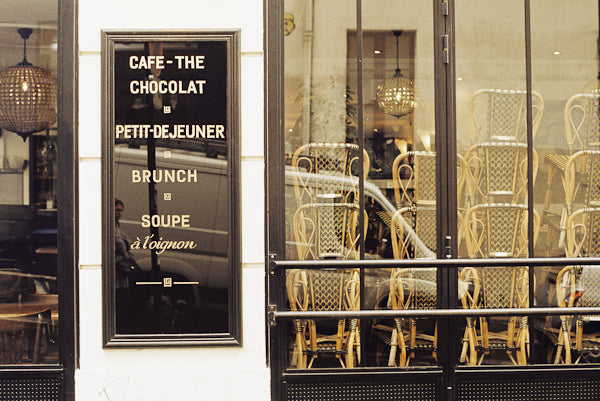 CAFE-THE
CHOCOLAT
PETIT-DEJEUNER
BRUNCH
SOUPE
à l'oignon